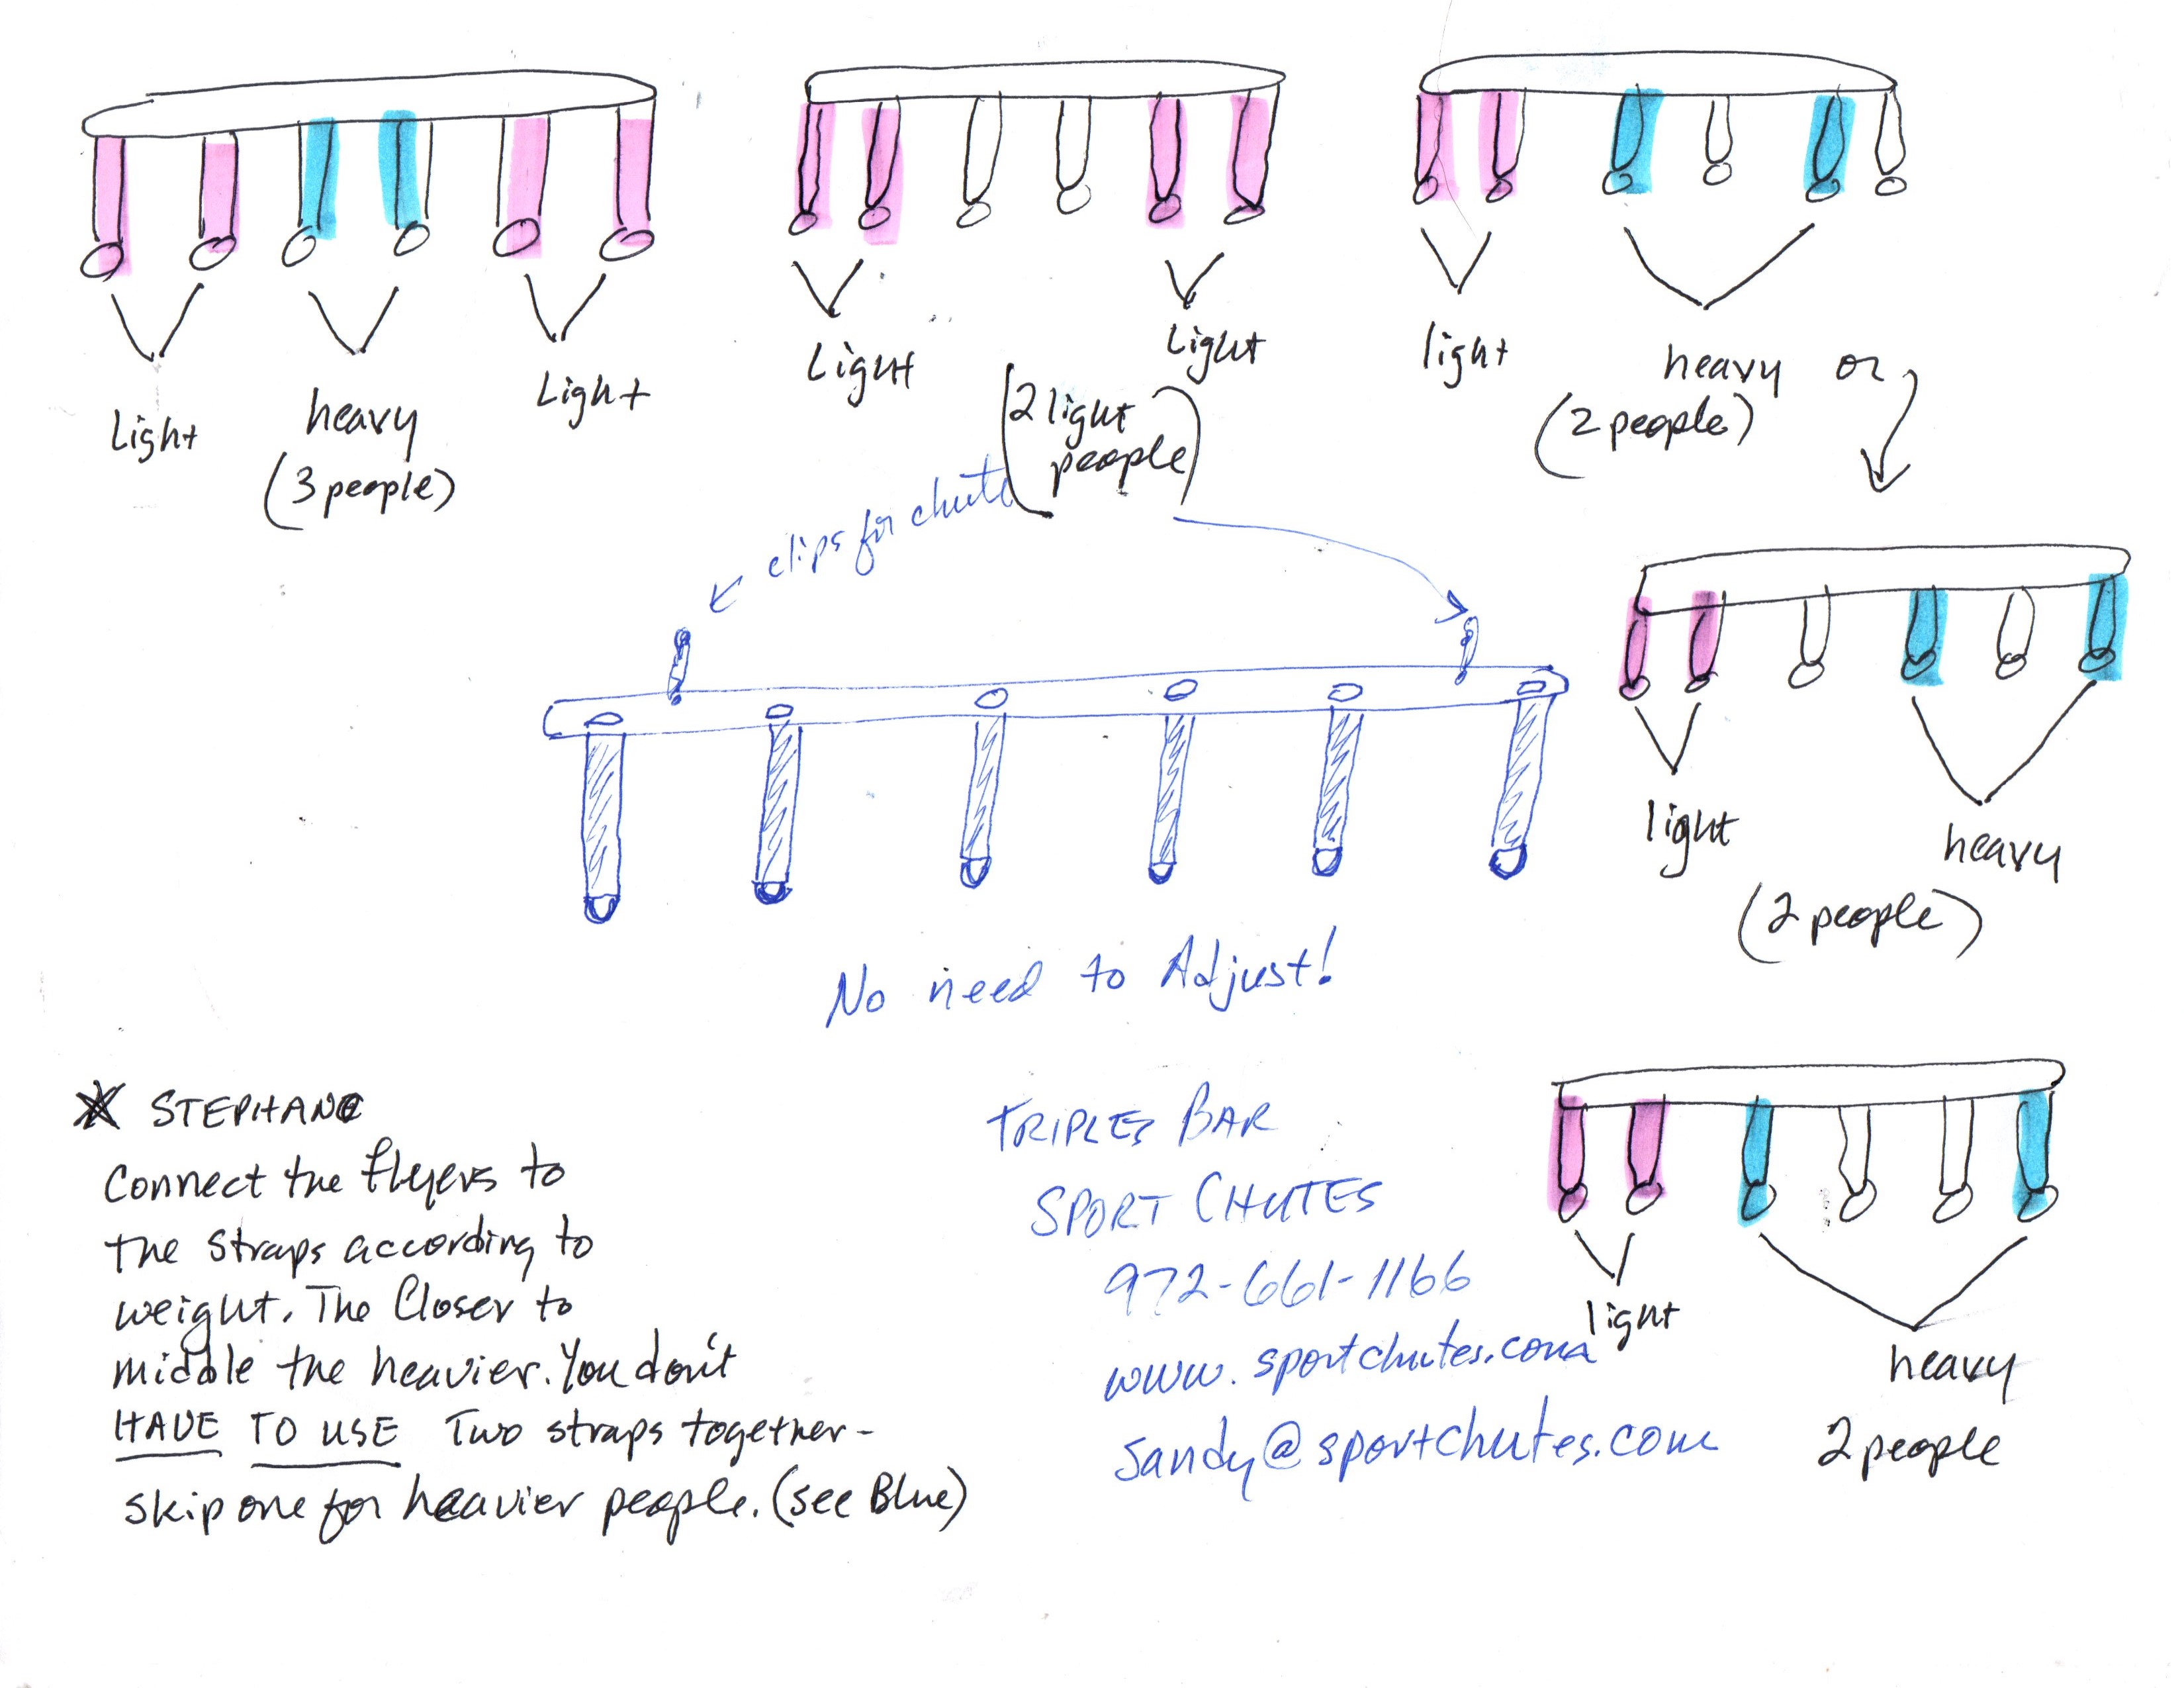 Light
heavy
(3 people)
Light
Light
Light
(2 light
people)
light
heavy or
(2 people)
clips for chute
light
heavy
(2 people)
No need to Adjust!
STEPHANE
Connect the flyers to
the straps according to
weight. The Closer to
middle the heavier. You don't
HAVE TO USE Two straps together-
skip one for heavier people. (see Blue)
TRIPLES BAR
SPORT CHUTES
972-661-1166
www.sportchutes.com
sandy@sportchutes.com
light
heavy
2 people